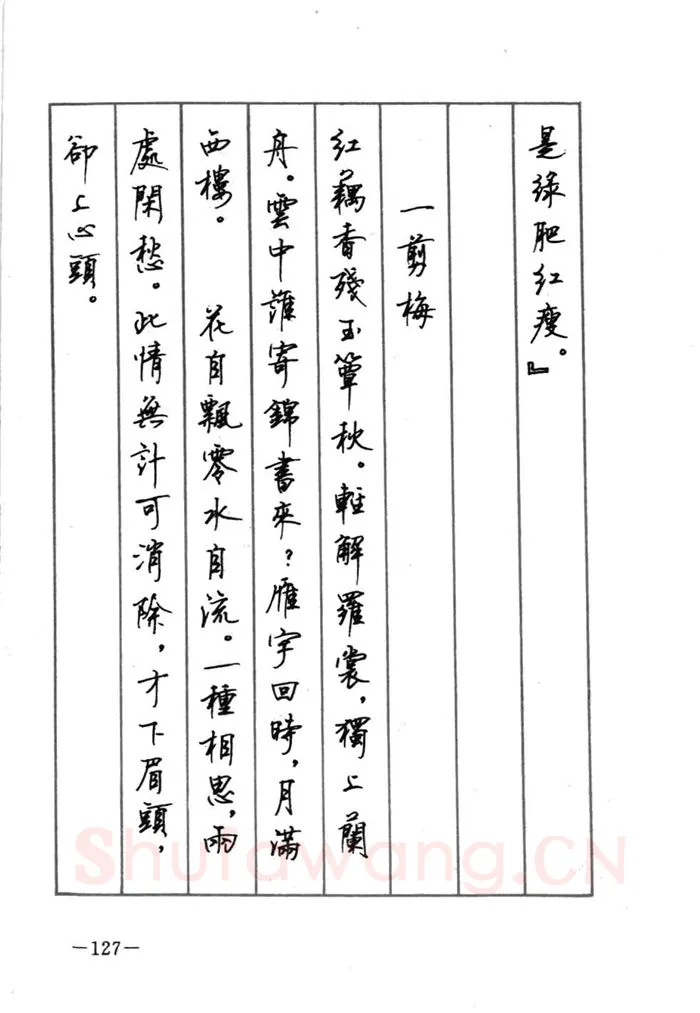 是綠肥紅瘦。』
一剪梅
紅藕香殘玉簟秋。輕解羅裳，獨上蘭
舟。雲中誰寄錦書來？雁字回時，月滿
西樓。　　花自飄零水自流。一種相思，兩
處閑愁。此情無計可消除，才下眉頭，
卻上心頭。
—127—
Shufawang.CN